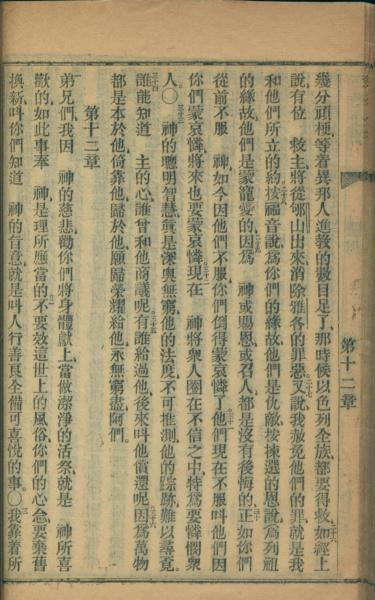 幾分頑梗等着異邦人進教的數目足了那時候以色列全族都要得救如經上
說有位 救主將從郇山出來消除雅各的罪惡又說我赦免他們的罪就是我
和他們所立的約按福音說爲你們的緣故他們是仇敵按揀選的恩說爲列祖
的緣故他們是蒙寵愛的因爲 神或賜恩或召人都是沒有後悔的正如你們
從前不服 神如今因他們不服你們倒得蒙哀憐了他們現在不服叫他們因
你們蒙哀憐將來也要蒙哀憐現在 神將衆人圈在不信之中特爲要憐憫衆
人○ 神的聰明智慧眞是深奧無窮他的法度不可推測他的踪跡難以尋覓
誰能知道 主的心誰曾和他商議呢有誰給過他後來叫他償還呢因爲萬物
都是本於他倚靠他歸於他願歸榮耀給他永無窮盡阿們
第十二章
弟兄們我因 神的慈悲勸你們將身體獻上當做潔淨的活祭就是 神所喜
歡的如此事奉 神是理所應當的不要效這世上的風俗你們的心念要棄舊
換新叫你們知道 神的旨意就是叫人行善良全備可喜悅的事○我靠着所
第十二章